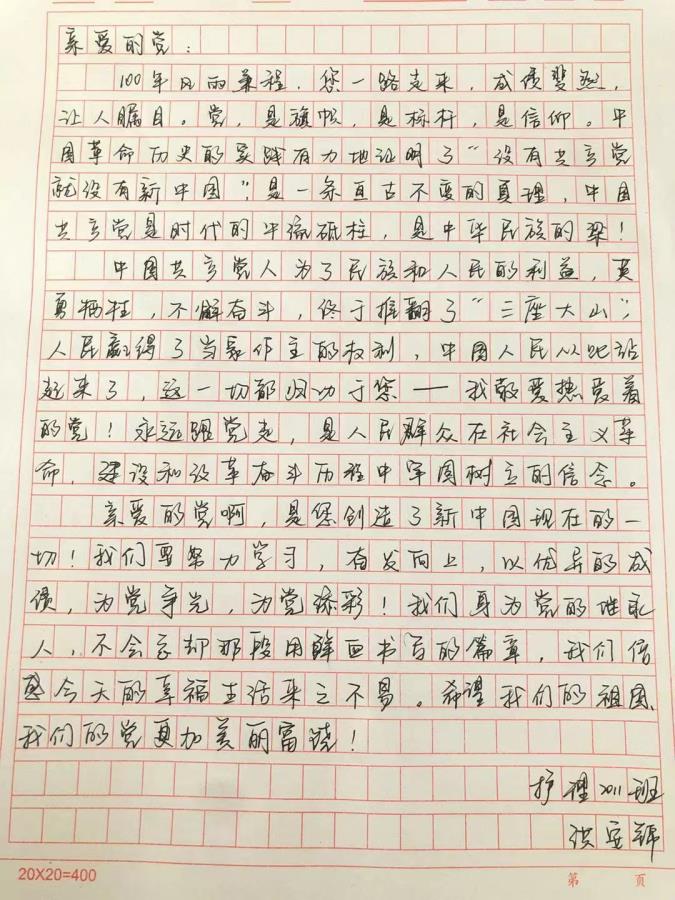 亲爱的党：
100年风雨兼程，您一路走来，成绩斐然，
让人瞩目。党，是旗帜，是标杆，是信仰。中
国革命历史的实践有力地证明了“没有共产党
就没有新中国”，是一条亘古不变的真理，中国
共产党是时代的中流砥柱，是中华民族的梁！
中国共产党人为了民族和人民的利益，英
勇牺牲，不懈奋斗，终于推翻了“三座大山”，
人民赢得了当家作主的权利，中国人民从此站
起来了，这一切都归功于您——我敬爱热爱着
的党！永远跟党走，是人民群众在社会主义革
命，建设和改革奋斗历程中牢固树立的信念。
亲爱的党啊，是您创造了新中国现在的一
切！我们要努力学习，奋发向上，以优异的成
绩，为党争光，为党添彩！我们身为党的继承
人，不会忘却那段用鲜血书写的篇章，我们倍
感今天的幸福生活来之不易。希望我们的祖国、
我们的党更加美丽富饶！
护理2011班
20X20=400
第 页